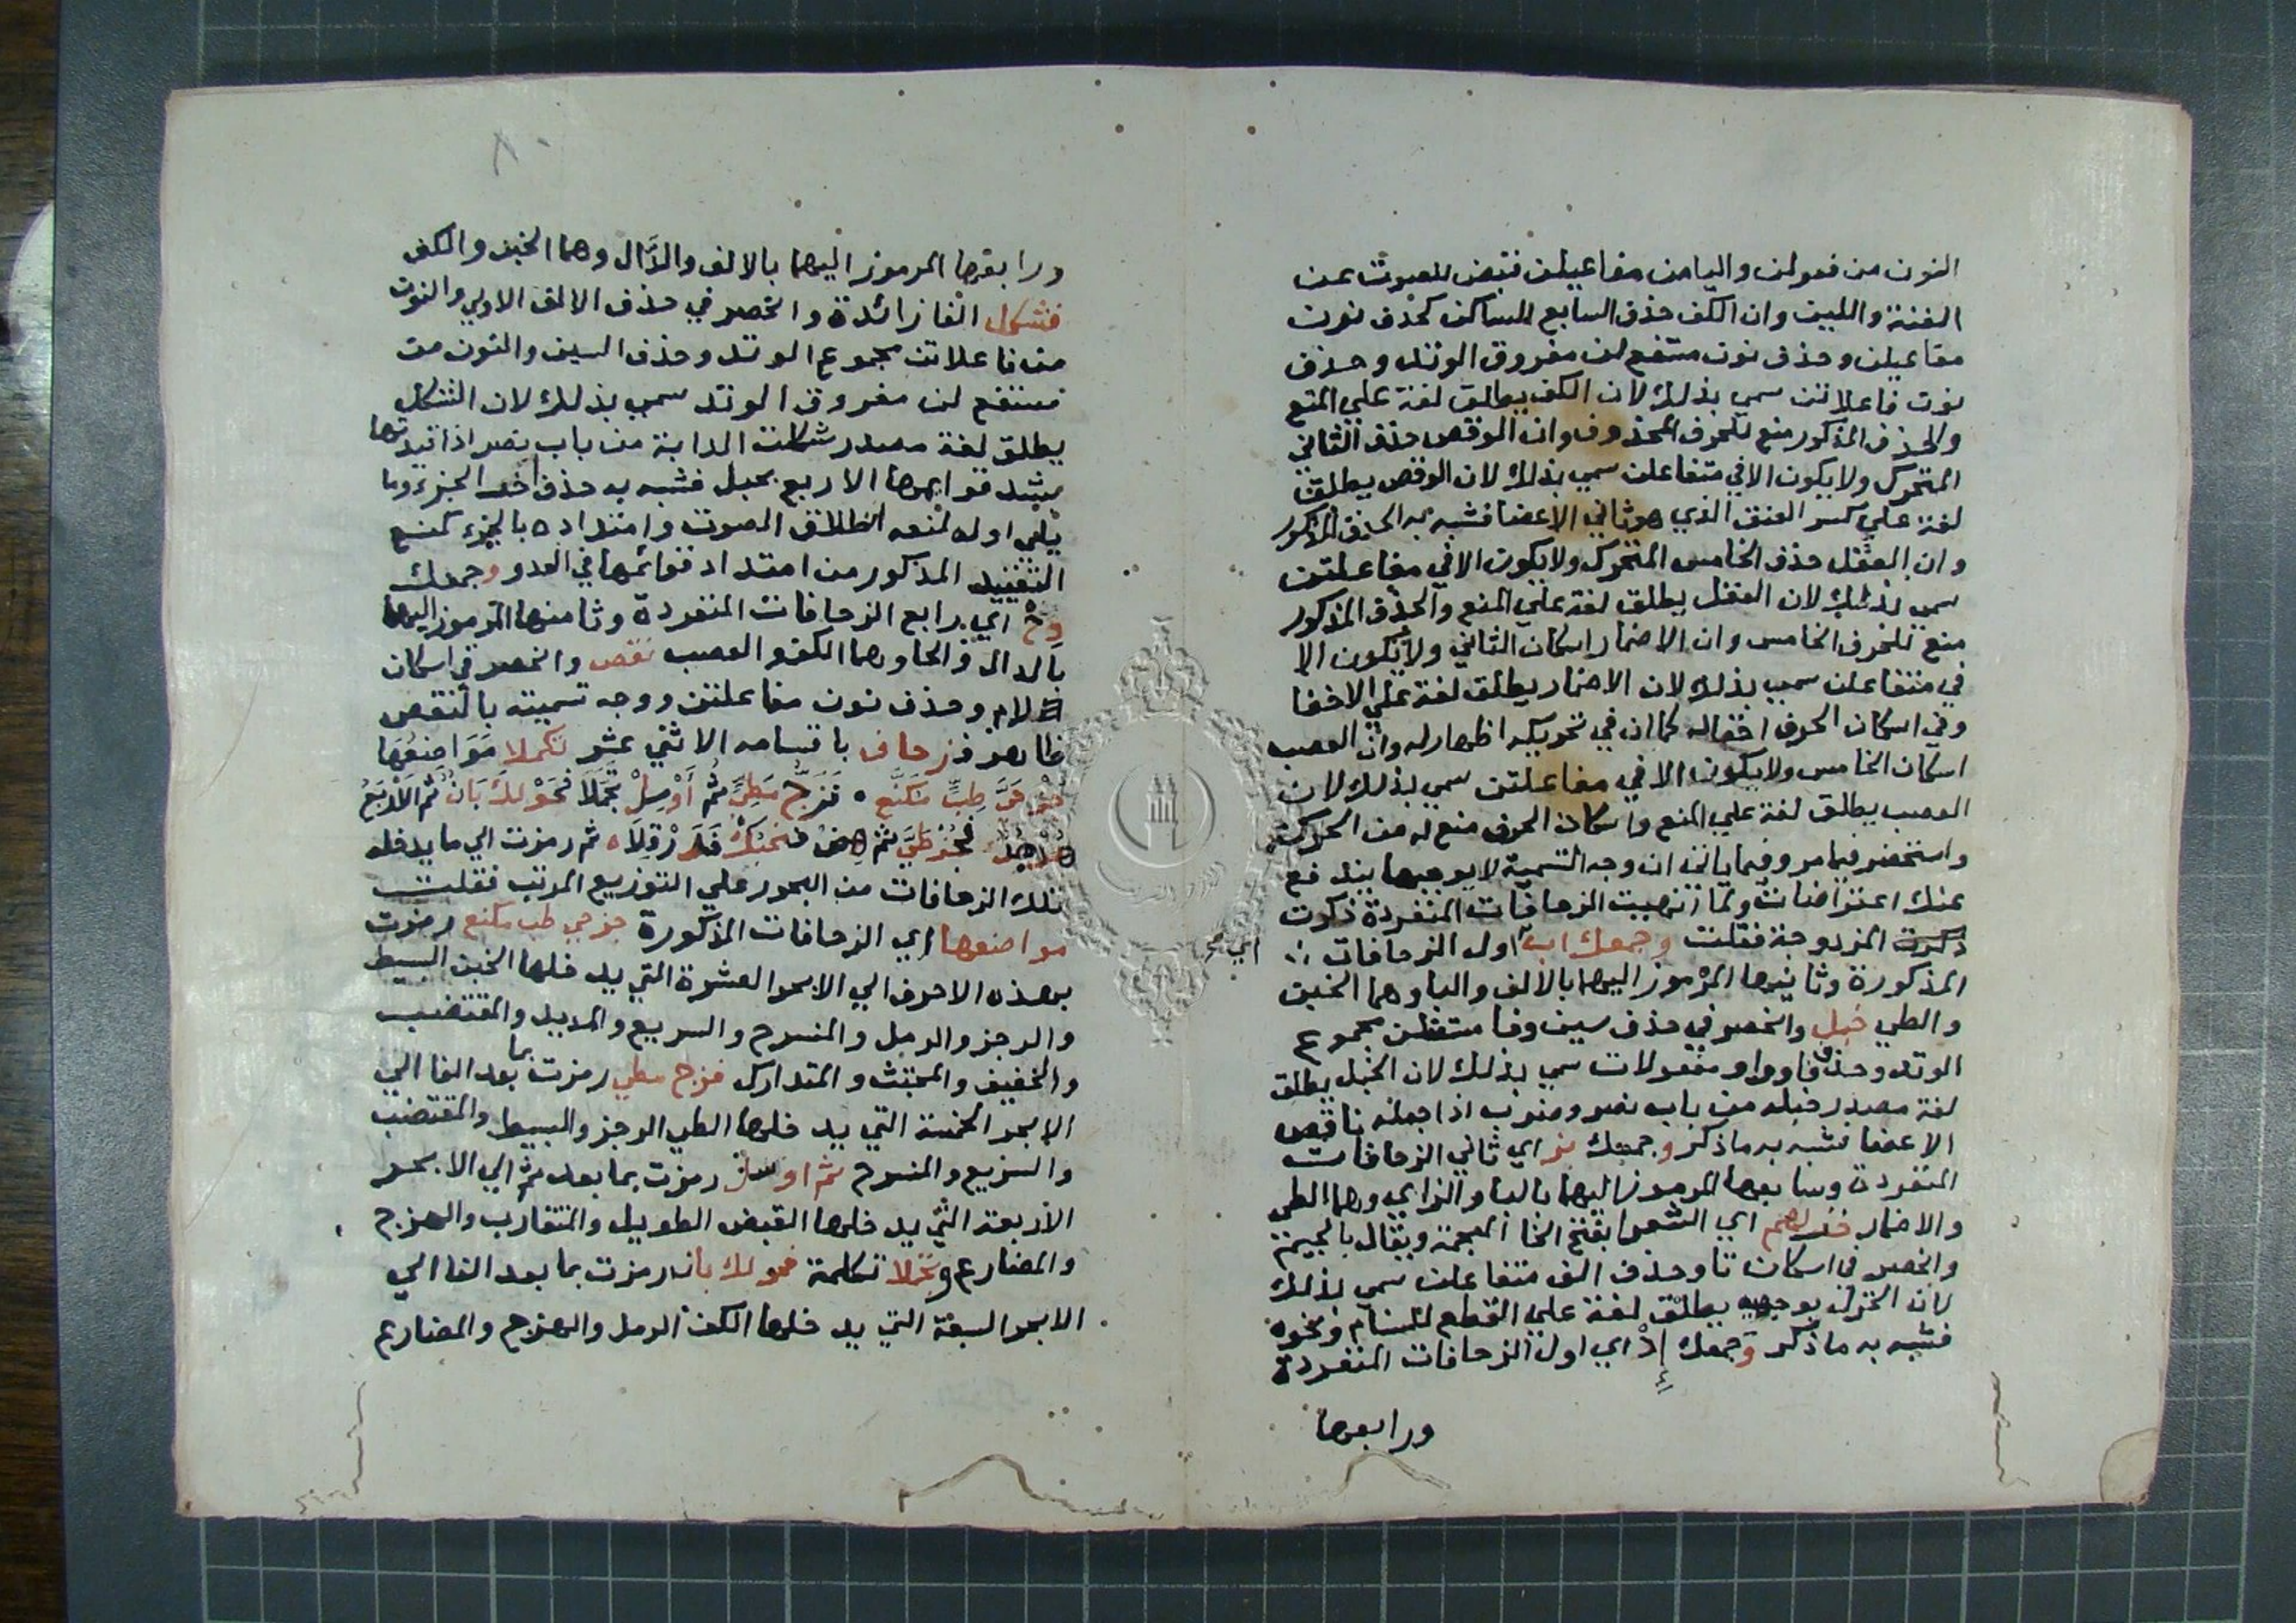 النون من فعولن واليا من مفاعيلن فقبض للصوت عن
الغنة واللين وان الكف حذف السابع الساكن كحذف نون
مفاعيلن وحذف نون مستفع لن مفروق الوتد وحذف
نون فاعلاتن سمي بذلك لان الكف يطلق لغة علي المنع
والحذف المذكور منع للحرف المحذوف وان الوقص حذف الثاني
المتحرك ولا يكون الا في متفاعلن سمي بذلك لان الوقص يطلق
لغة علي كسر العنق الذي هو ثاني الاعضا فشبه به الحذف المذكور
وان العقل حذف الخامس المتحرك ولا يكون الا في مفاعلتن
سمي بذلك لان العقل يطلق لغة علي المنع والحذف المذكور
منع للحرف الخامس وان الاضمار اسكان الثاني ولا يكون الا
في متفاعلن سمي بذلك لان الاضمار يطلق لغة علي الاخفا
وفي اسكان الحرف اخفاله كما ان في تحريكه اظهار له وان العصب
اسكان الخامس ولا يكون الا في مفاعلتن سمي بذلك لان
العصب يطلق لغة علي المنع واسكان الحرف منع له من الحركة
واستحضر فيما مر وفيما ياتي ان وجه التسمية لا يوجبها يندفع
عنك اعتراضات ولما انهيت الزحافات المنفردة ذكرت
ذكرت المزدوجة فقلت وجمعك اب اول الزحافات
اي
المذكورة وثانيها المرموز اليهما بالالف والبا وهما الخبن
والطي خبل وانحصر في حذف سين وفا مستفعلن مجموع
الوتد وحذف فا وواو مفعولات سمي بذلك لان الخبل يطلق
لغة مصدر خبله من باب نصر وضرب اذا جعله ناقص
الاعضا فشبه به ما ذكر وجمعك بز اي ثاني الزحافات
المنفردة وسابعها المرموز اليهما بالبا والزاي وهما الطي
والاضمار خزلهم اي الشعرا بفتح الخا المعجمة ويقال بالجيم
وانحصر في اسكان تا وحذف الف متفاعلن سمي بذلك
لان الخزل بوجهيه يطلق لغة علي القطع للسنام ونحوه
فشبه به ما ذكر وجمعك إذ اي اول الزحافات المنفردة
ورابعها
ورابعها المرموز اليهما بالالف والدَّال وهما الخبن والكف
فشكل الفا زائدة وانحصر في حذف الالف الاولي والنون
من فاعلاتن مجموع الوتد وحذف السين والنون من
مستفع لن مفروق الوتد سمي بذلك لان الشكل
يطلق لغة مصدر شكلت الدابة من باب نصر اذا قيدتها
بشد قوايمها الاربع بحبل فشبه به حذف اخر الجزء وما
يلي اوله لمنعه انطلاق الصوت وامتداده بالجزء كمنع
التقييد المذكور من امتداد قوائمها في العدو وجمعك
دح اي رابع الزحافات المنفردة وثامنها المرموز اليهما
بالدال والحا وهما الكف والعصب نقص وانحصر في اسكان
لام وحذف نون مفاعلتن ووجه تسميته بالنقص
ظاهر فزحاف باقسامه الاثني عشر تكملا مَوَاضِعُهَا
طِبِّ مَكنَع ٠ فَزَجِّ مَطِيٍّ ثُم أَوْسِلْ تَجَمَّلَا فَحَوْلكَ بَانَ ثُم
ثم رمزت الي ما يدخله
تلك الزحافات من البحور علي التوزيع المرتب فقلت
مواضعها اي الزحافات المذكورة جز حي طب مكنع رمزت
بهذه الاحرف الي الابحر العشرة التي يدخلها الخبن البسيط
والرجز والرمل والمنسرح والسريع والمديد والمقتضب
والخفيف والمجتث والمتدارك فزج مطي رمزت بما بعد الفا الي
الابحر الخمسة التي يدخلها الطي الرجز والبسيط والمقتضب
والسريع والمنسرح ثم اوسل رمزت بما بعد ثم الي الابحر
الاربعة التي يدخلها القبض الطويل والمتقارب والهزج
والمضارع وتجملا تكلمة فحولك بان رمزت بما بعد الفا الي
الابحر السبعة التي يدخلها الكف الرمل والهزج والمضارع